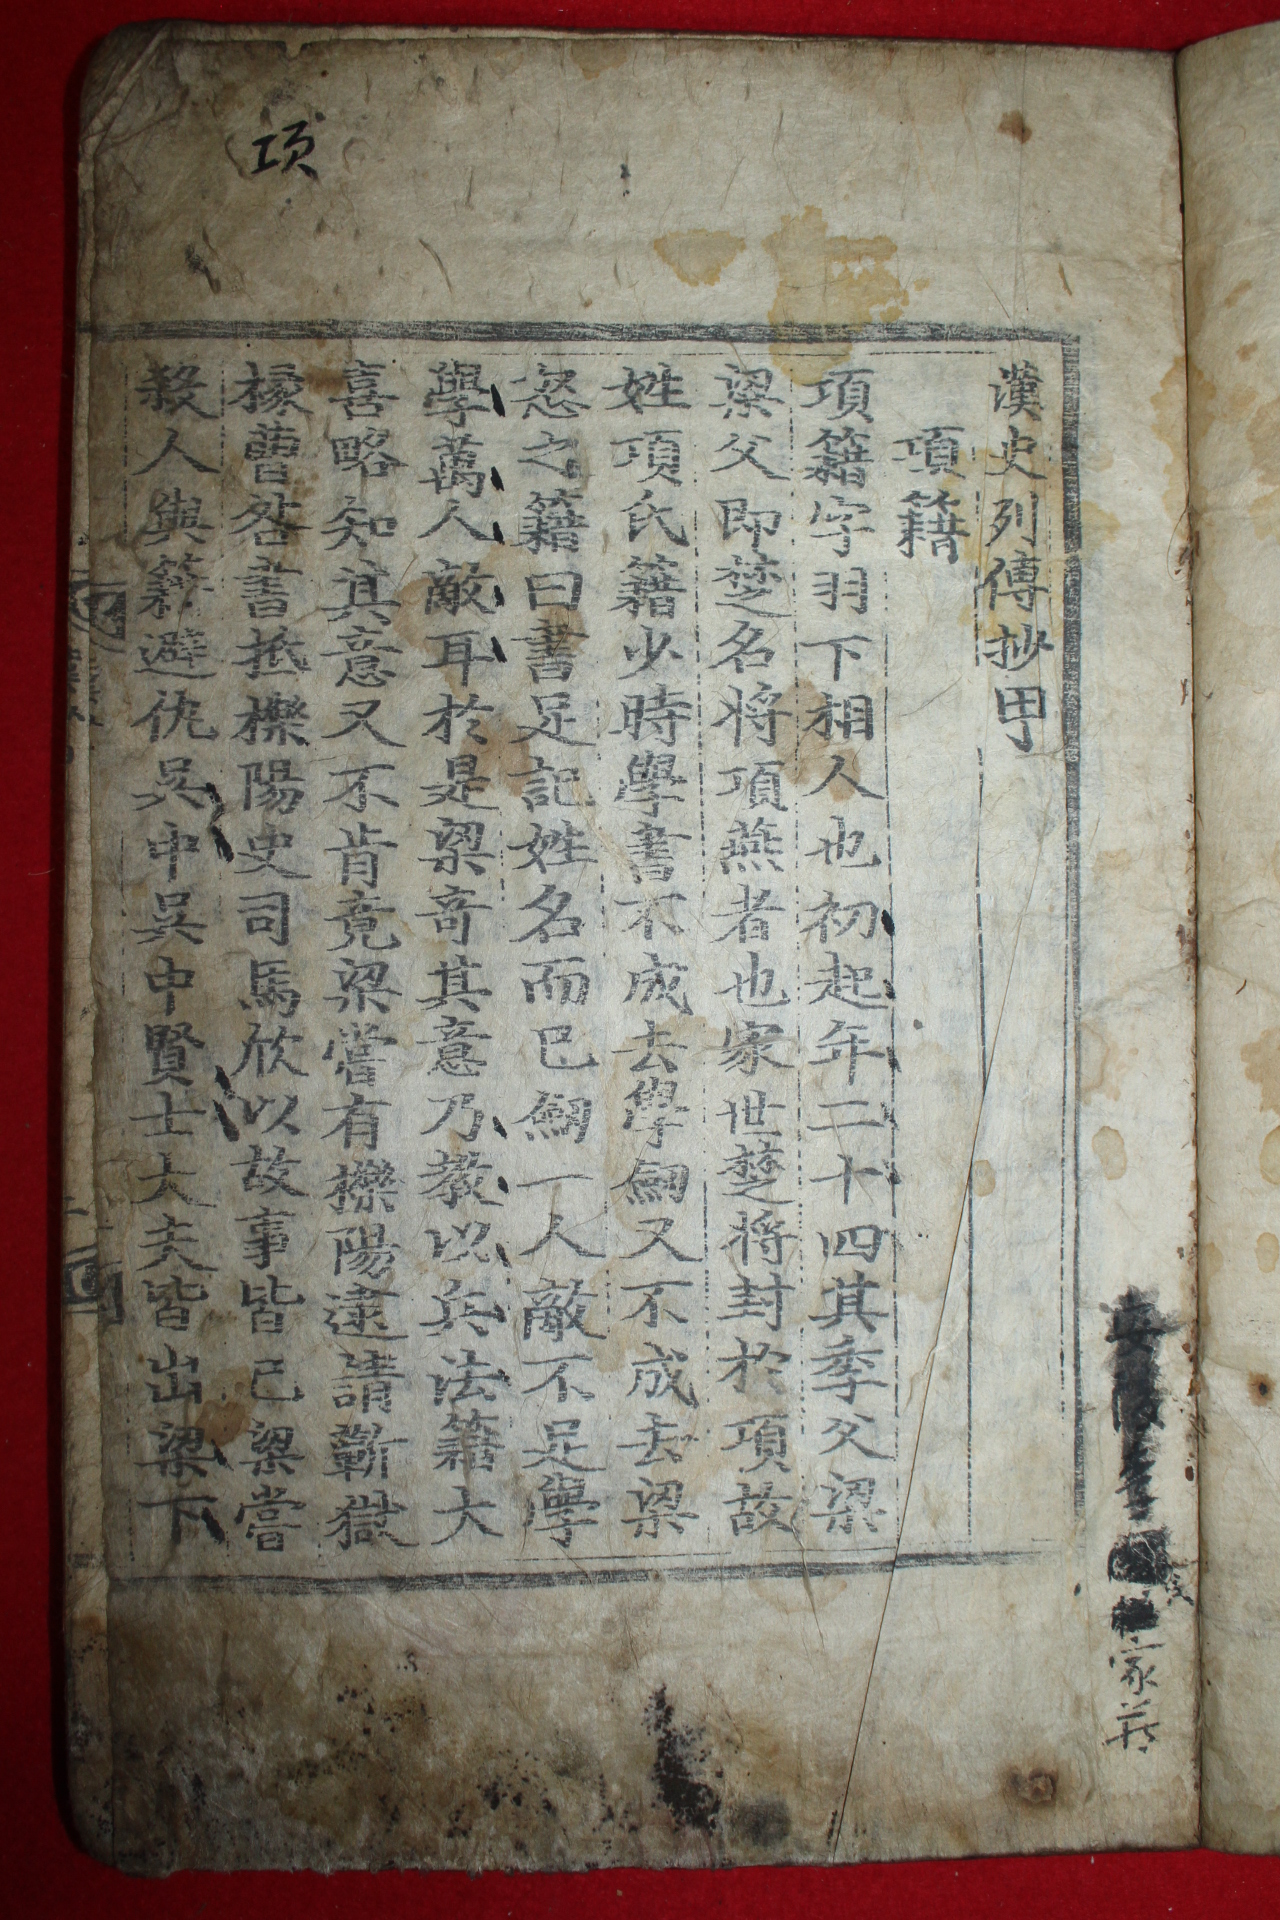 漢史列傳抄甲
項籍
項籍字羽下相人也初起年二十四其季父梁
梁父即楚名將項燕者也家世楚將封於項故
姓項氏籍少時學書不成去學劒又不成去梁
怒之籍曰書足記姓名而已劒一人敵不足學
學萬人敵耳於是梁奇其意乃教以兵法籍大
喜略知其意又不肯竟梁嘗有櫟陽逮請蘄獄
掾曹咎書抵櫟陽史司馬欣以故事皆已梁嘗
殺人與籍避仇吳中吳中賢士大夫皆出梁下
項
家藏